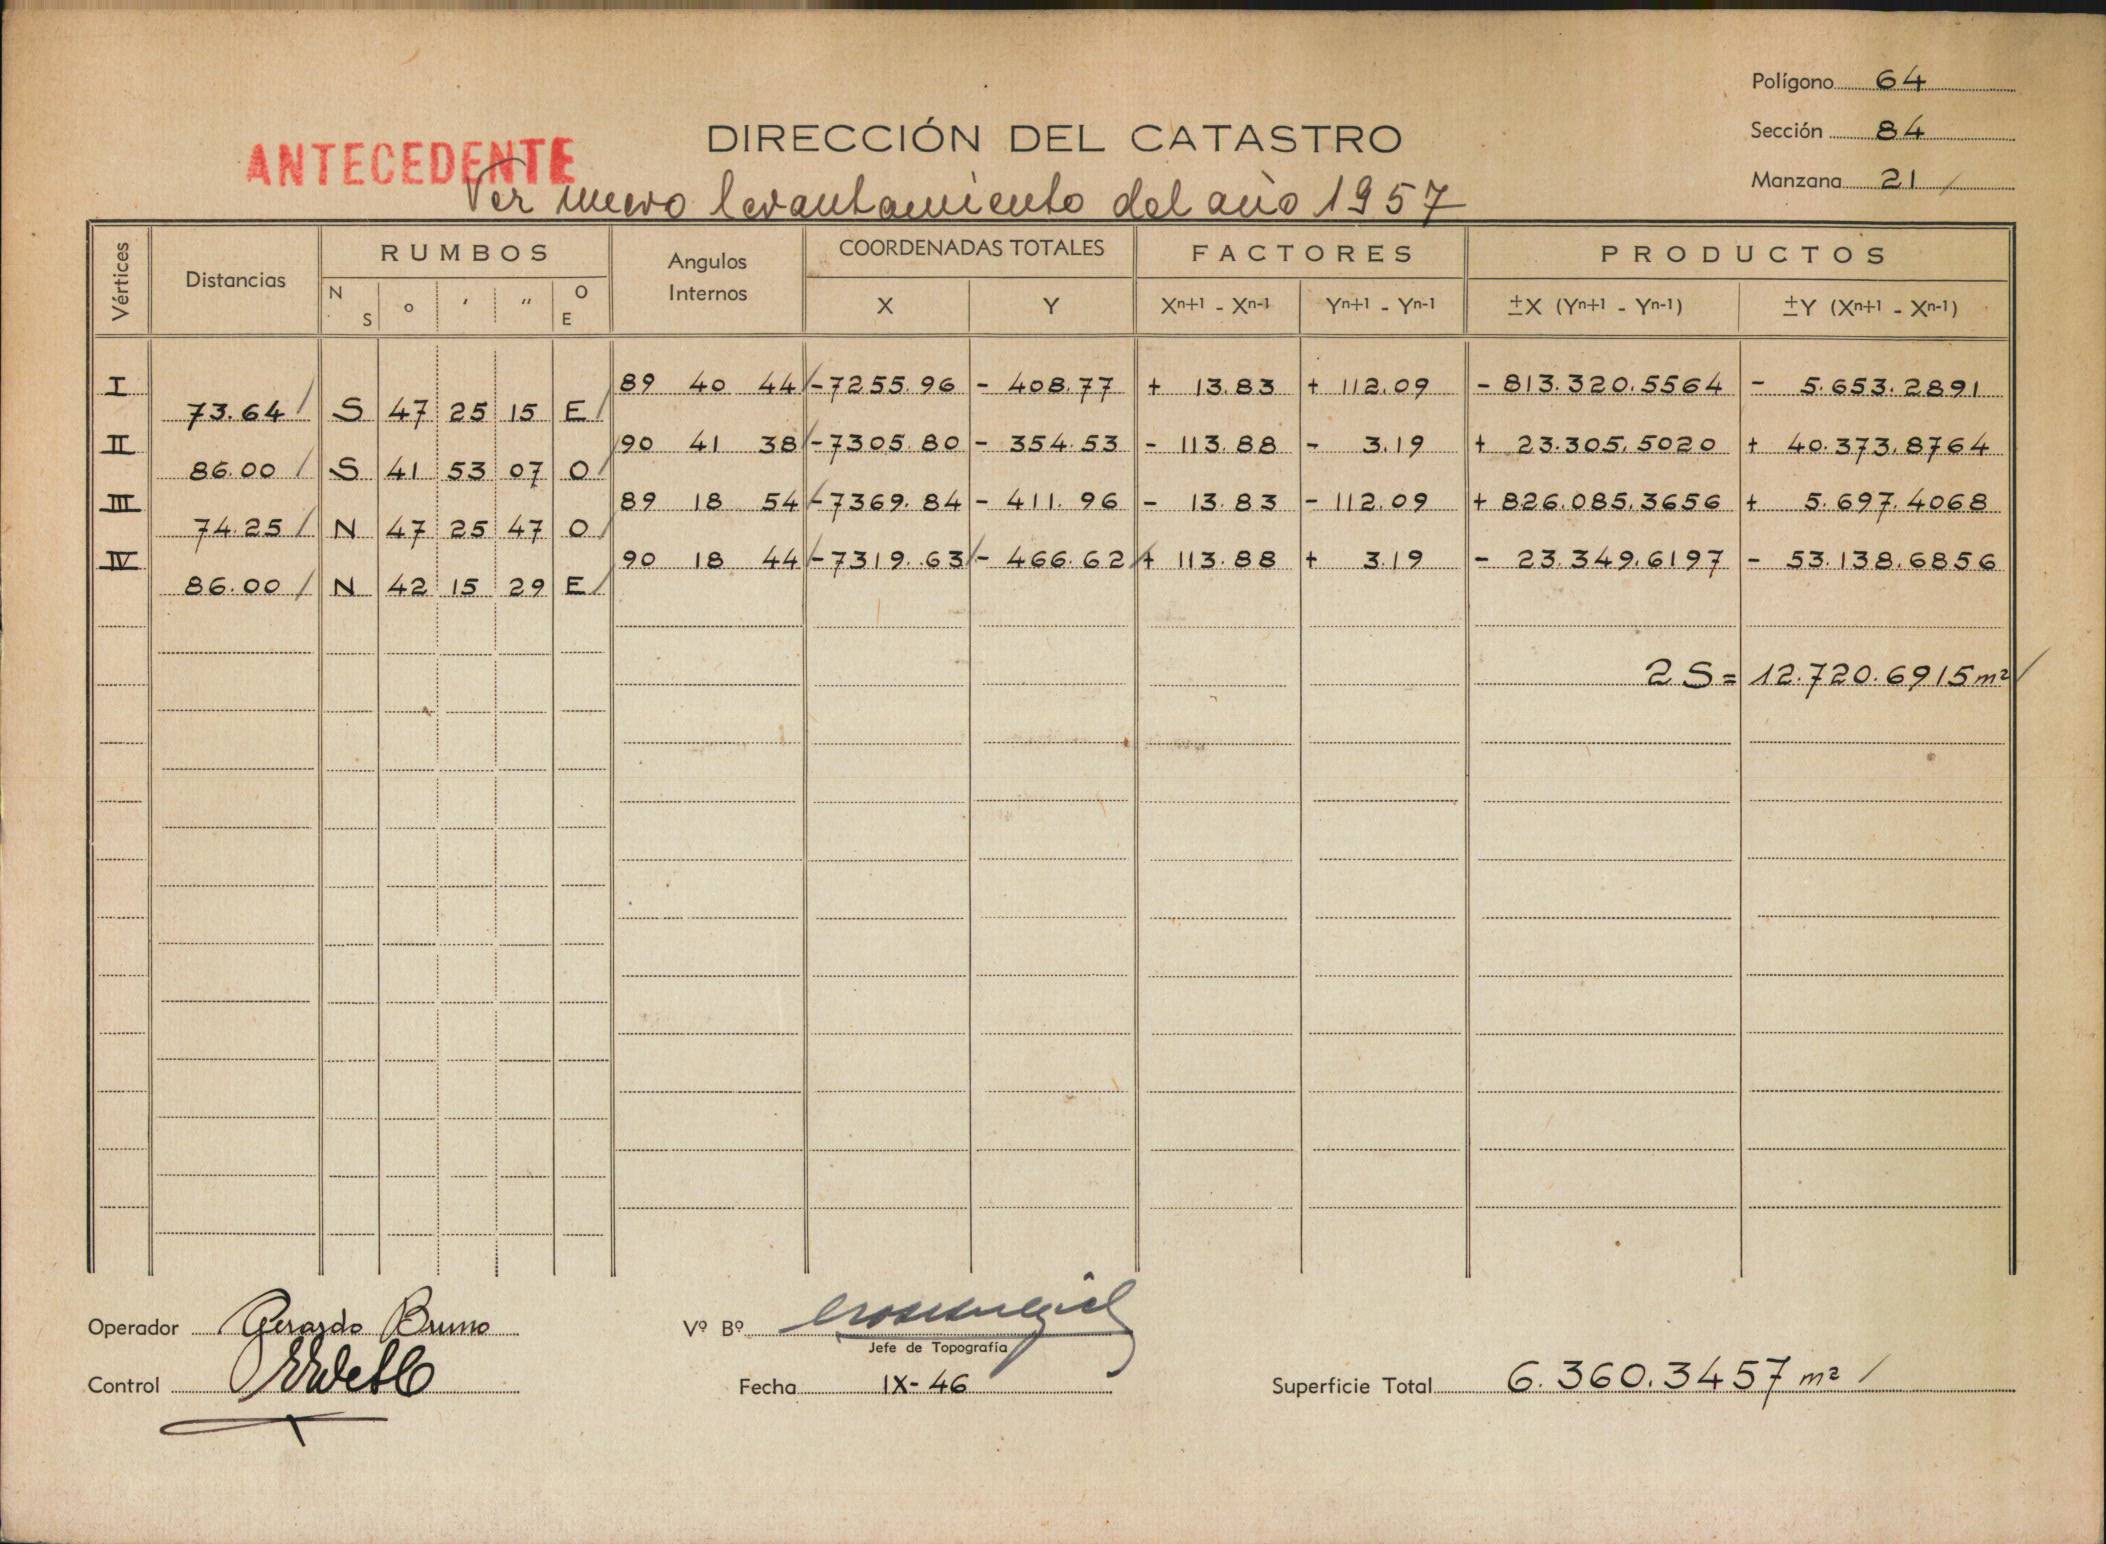 Polígono 64
Sección 84
Manzana 21
ANTECEDENTE
DIRECCIÓN DEL CATASTRO
Ver nuevo levantamiento del año 1957
Vértices Distancias RUMBOS Angulos Internos COORDENADAS TOTALES FACTORES PRODUCTOS
N S o ′ ″ O E X Y Xn+1 - Xn-1 Yn+1 - Yn-1 ±X (Yn+1 - Yn-1) ±Y (Xn+1 - Xn-1)
I 89 40 44 -7255.96 - 408.77 + 13.83 + 112.09 - 813.320.5564 - 5.653.2891
73.64 S 47 25 15 E
II 90 41 38 -7305.80 - 354.53 - 113.88 - 3.19 + 23.305.5020 + 40.373.8764
86.00 S 41 53 07 O
III 89 18 54 -7369.84 - 411.96 - 13.83 - 112.09 + 826.085.3656 + 5.697.4068
74.25 N 47 25 47 O
IV 90 18 44 -7319.63 - 466.62 + 113.88 + 3.19 - 23.349.6197 - 53.138.6856
86.00 N 42 15 29 E
2 S = 12.720.6915 m²
Operador Gerardo Bruno
Vº Bº
Jefe de Topografía
Control
Fecha IX-46
Superficie Total 6.360.3457 m²